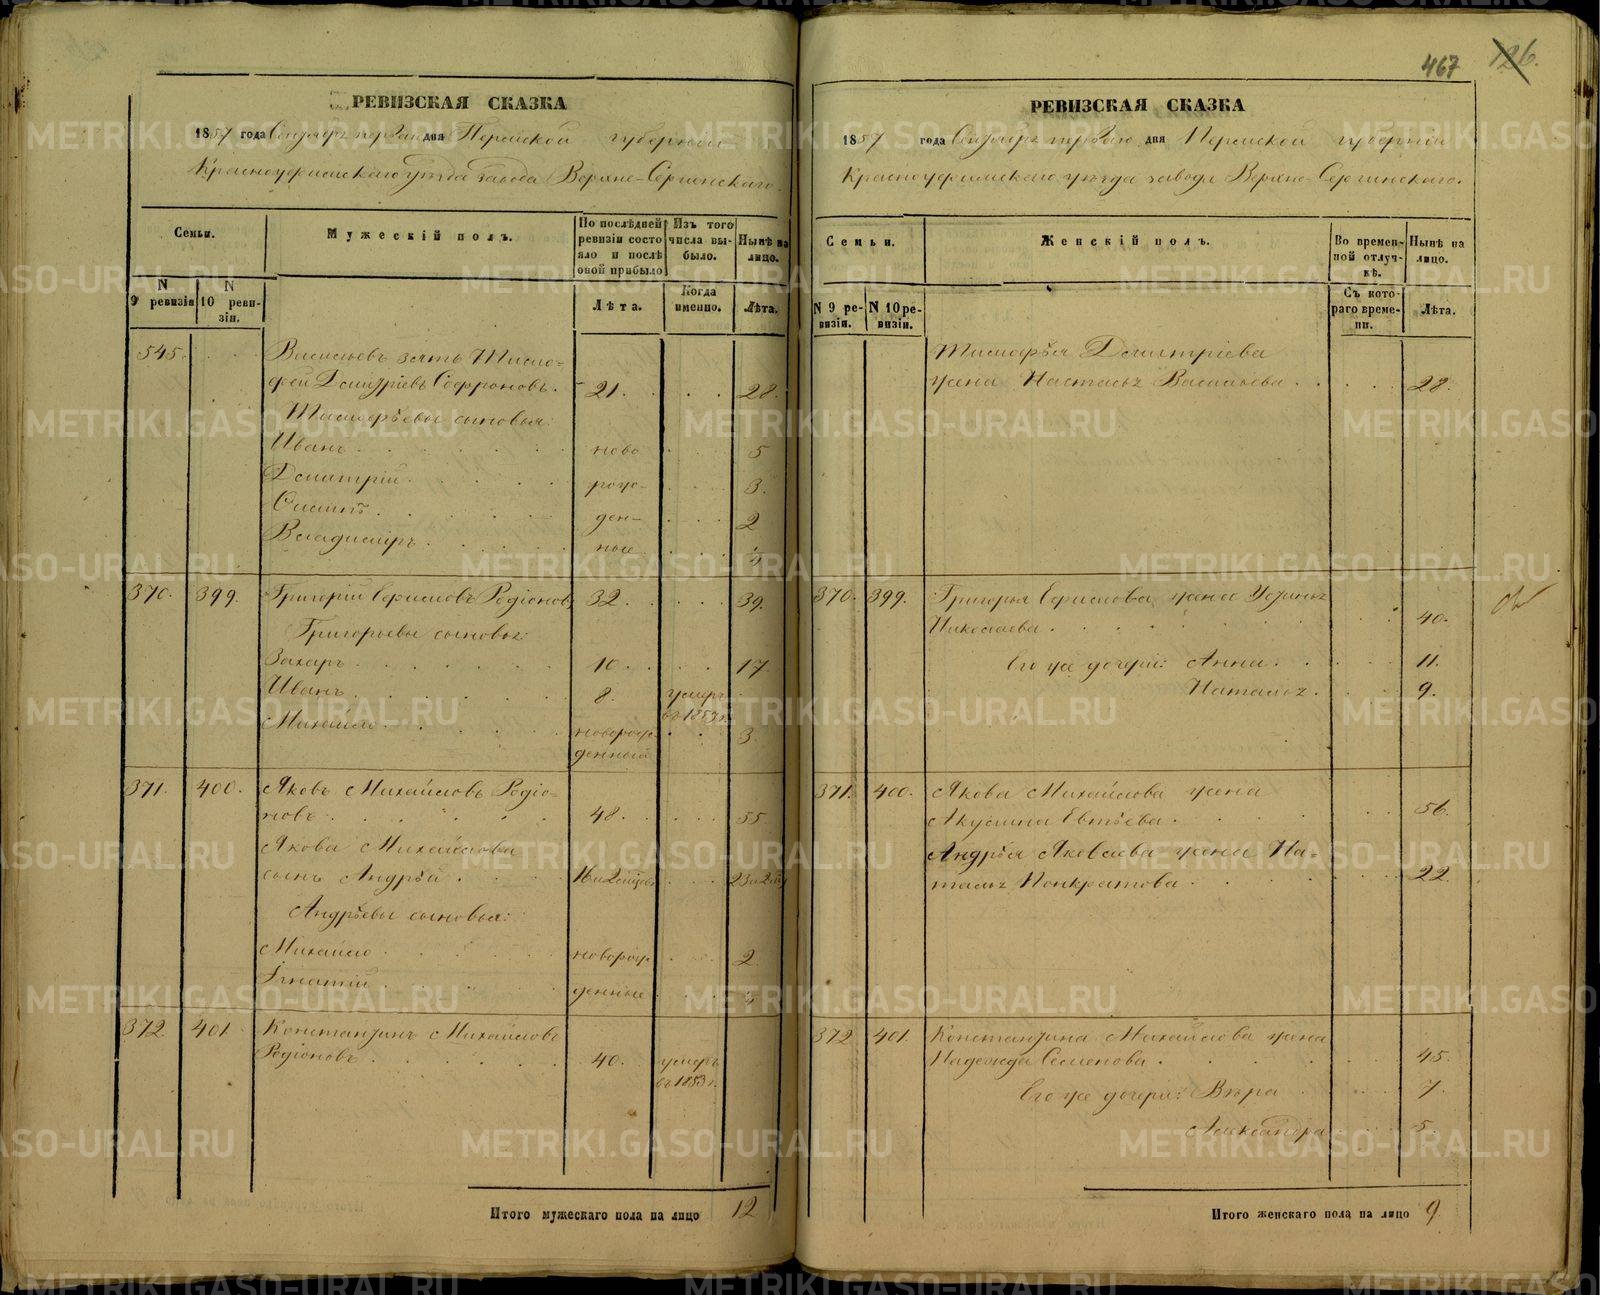 467 126.
РЕВИЗСКАЯ СКАЗКА
1857 года Сентября перваго дня Пермской губернии
Красноуфимскаго уѣзда завода Верхне-Сергинскаго.
Семьи.
Мужескій полъ.
По послѣдней ревизіи состояло и послѣ оной прибыло
Изъ того числа выбыло.
Нынѣ на лицо.
N 9 ревизіи
N 10 ревизіи.
Лѣта.
Когда именно.
Лѣта.
545. Васильевъ зять Тимо-
фей Дмитріевъ Софроновъ. 21. 28.
Тимофѣевы сыновья:
Иванъ ново 5
Дмитрій рож- 3.
Осипъ ден- 2
Владиміръ ные
370. 399. Григорій Борисовъ Родіоновъ 32. 39.
Григорьевы сыновья:
Захаръ 10. 17
Иванъ 8. умеръ
въ 1857 г.
Михайло новорож- 3.
денный
371. 400. Яковъ Михайловъ Родіо-
новъ 48. 55
Якова Михайлова
сынъ Андрѣй 16 и 2 мѣсяц. 23 и 2 м
Андрѣевы сыновья:
Михайло новорож- 2
Игнатій денные
372 401 Константинъ Михайловъ
Родіоновъ 40. умеръ
въ 1853 г.
Итого мужескаго пола на лицо 12
РЕВИЗСКАЯ СКАЗКА
1857 года Сентября перваго дня Пермской губерніи
Красноуфимскаго уѣзда завода Верхне-Сергинскаго.
Семьи.
Женскій полъ.
Во временной отлучкѣ.
Нынѣ на лицо.
N 9 ревизіи.
N 10 ревизіи.
Съ котораго времени.
Лѣта.
Тимофѣя Дмитріева
жена Настасья Васильева 28.
370. 399. Григорья Борисова жена Устинья
Николаева 40.
Его же дочери: Анна 11.
Наталья 9.
371. 400. Якова Михайлова жена
Акулина Евтѣева 56.
Андрѣя Яковлева жена На-
талья Понкратова 22.
372 401. Константина Михайлова жена
Надежда Семенова 45.
Его же дочери: Вѣра 7.
Александра 5.
Итого женскаго пола на лицо 9
METRIKI.GASO-URAL.RU